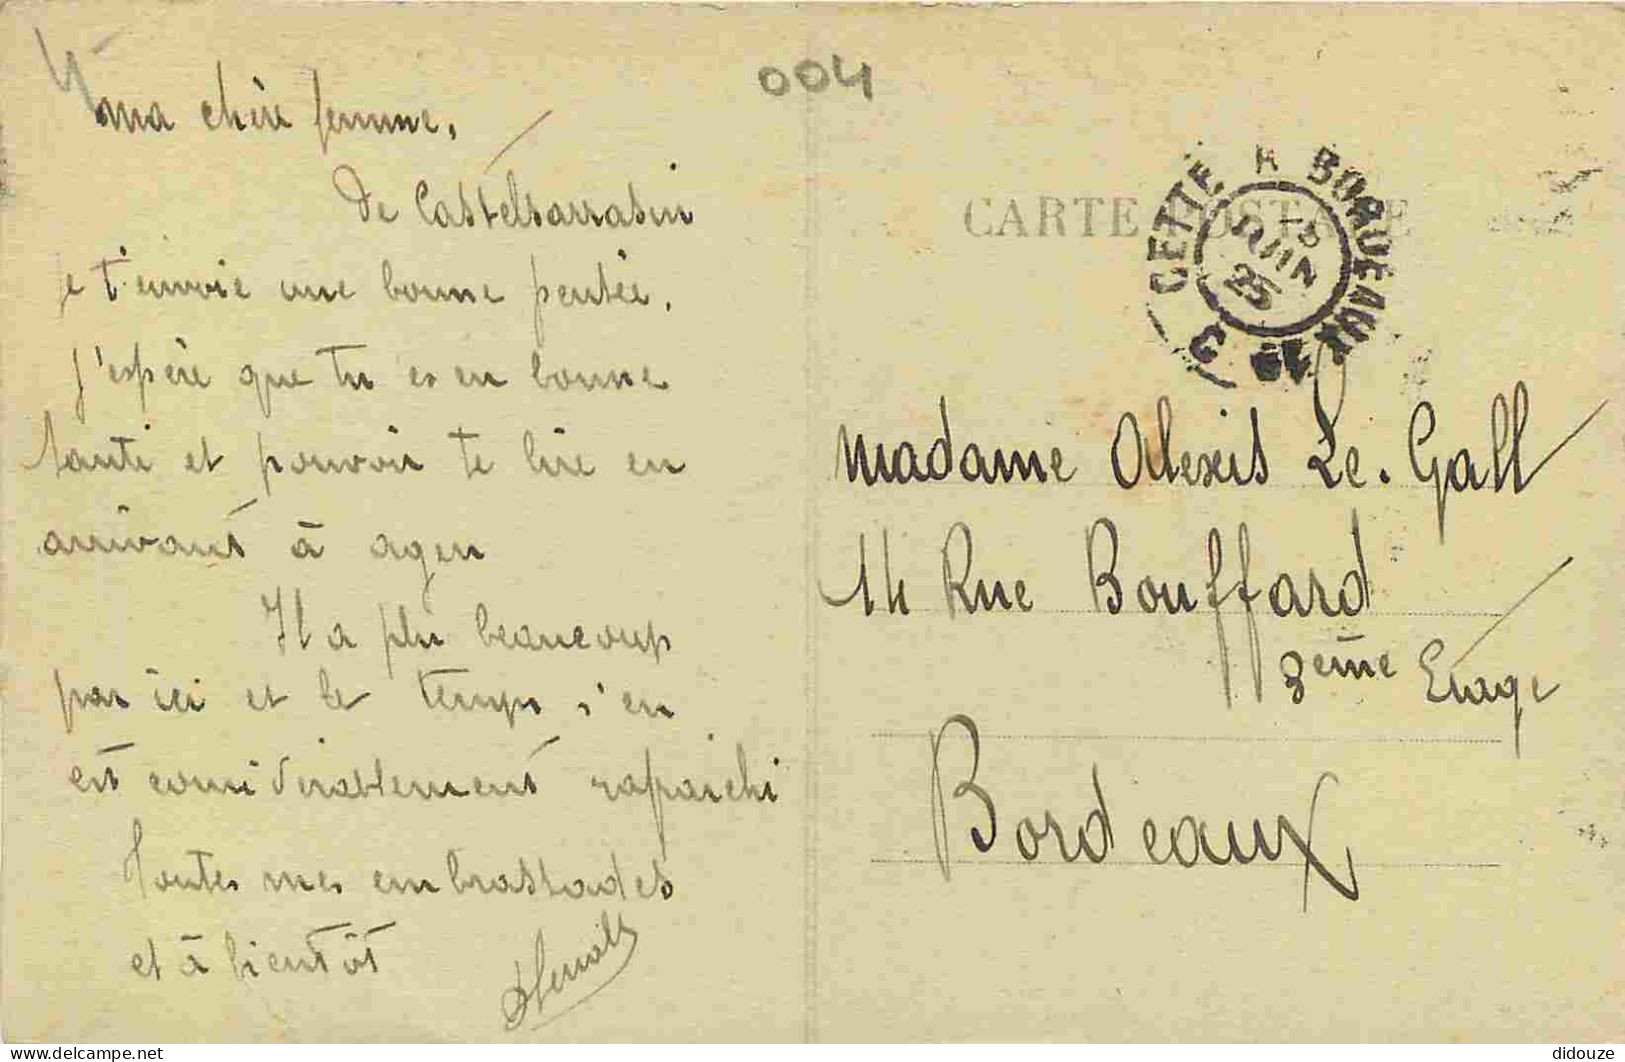 004
ma chère femme,
De Castelsarrasin
je t'envoie une bonne pensée.
J'espère que tu es en bonne
santé et pouvoir te lire en
arrivant à agen
Il a plu beaucoup
par ici et le temps s'en
est considérablement rafraichi
Toutes mes embrassades
et à bientôt
CARTE POSTALE
CETTE A BORDEAUX
JUIN
25
Madame Alexis Le. Gall
14 Rue Bouffard
3eme Etage
Bordeaux
delcampe.net
didouze